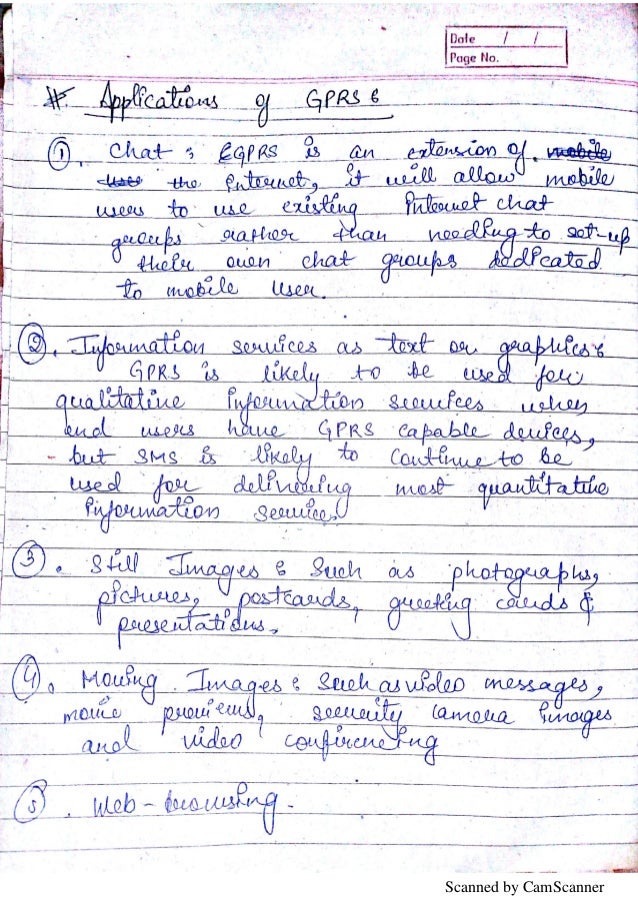 Date / /
Page No.
#. Applications of GPRS :
①. Chat : EGPRS is an extension of mobile
user the Internet, it will allow mobile
users to use existing Internet chat
groups rather than needing to set-up
their own chat groups dedicated
to mobile user.
②. Information services as text or graphics :
GPRS is likely to be used for
qualitative information services when
end users have GPRS capable devices,
but SMS is likely to continue to be
used for delivering most quantitative
information services
③. Still Images : Such as photographs,
pictures, postcards, greeting cards &
presentations.
④. Moving Images : Such as video messages,
movie previews, security camera images
and video confirencing
⑤. Web-browsing.
Scanned by CamScanner